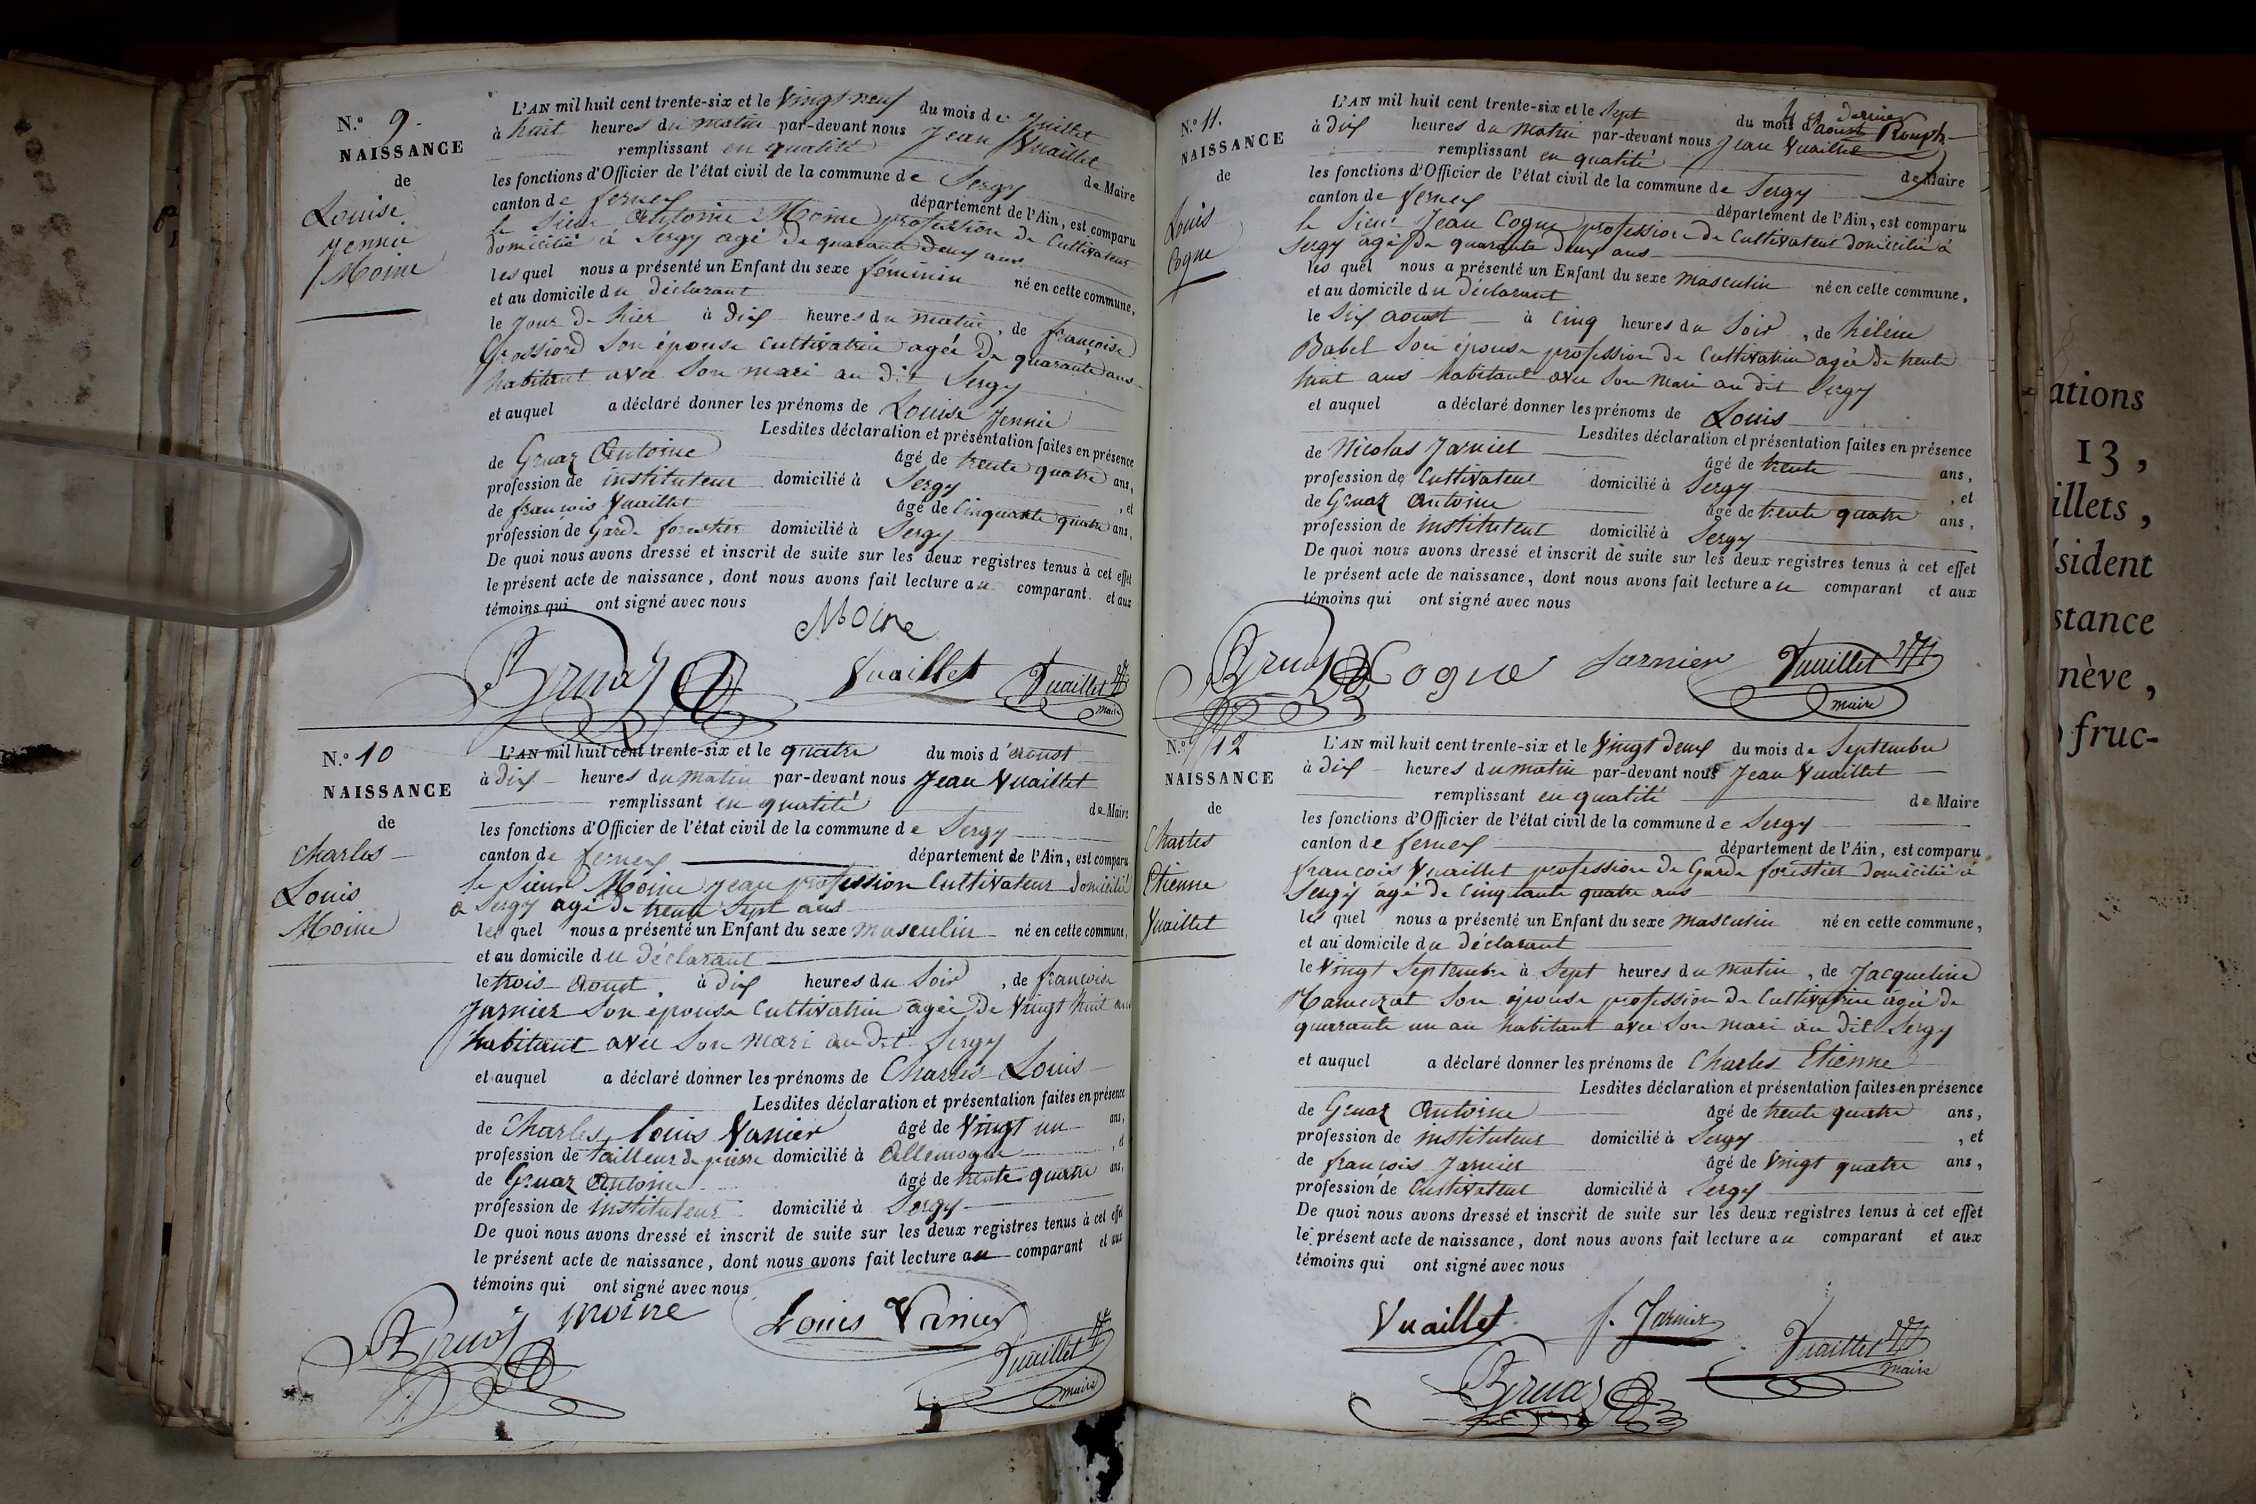 N.º 9.
NAISSANCE
de
Louise
Jennie
Moine
L'AN mil huit cent trente-six et le Vingt neuf du mois de Juillet
à huit heures du matin par-devant nous Jean Vuaillet
remplissant en qualité de Maire
les fonctions d'Officier de l'état civil de la commune de Sergy
canton de ferney département de l'Ain, est comparu
le Sieur Antoine Moine profession de Cultivateur
domicilié à Sergy agé de quarante deux ans
lequel nous a présenté un Enfant du sexe féminin né en cette commune,
et au domicile du déclarant
le jour de hier à dix heures du matin, de françoise
Grossiord son épouse cultivatrice agée de quarante ans
habitant avec son mari au dit Sergy
et auquel a déclaré donner les prénoms de Louise Jennie
Lesdites déclaration et présentation faites en présence
de Gruaz Antoine âgé de trente quatre ans,
profession de instituteur domicilié à Sergy , et
de françois Vuaillet âgé de Cinquante quatre ans,
profession de Garde forestier domicilié à Sergy
De quoi nous avons dressé et inscrit de suite sur les deux registres tenus à cet effet
le présent acte de naissance, dont nous avons fait lecture au comparant et aux
témoins qui ont signé avec nous
Moine
Gruaz Vuaillet Vuaillet
maire
N.º 10
NAISSANCE
de
Charles
Louis
Moine
L'AN mil huit cent trente-six et le quatre du mois d'Aoust
à dix heures du matin par-devant nous Jean Vuaillet
remplissant en qualité de Maire
les fonctions d'Officier de l'état civil de la commune de Sergy
canton de ferney département de l'Ain, est comparu
le Sieur Moine Jean profession Cultivateur domicilié
à Sergy agé de trente Sept ans
lequel nous a présenté un Enfant du sexe masculin né en cette commune,
et au domicile du déclarant
le trois Aoust, à dix heures du Soir, de françoise
Jarnier son épouse Cultivatrice agée de Vingt huit ans
habitant avec son mari au dit Sergy
et auquel a déclaré donner les prénoms de Charles Louis
Lesdites déclaration et présentation faites en présence
de Charles Louis Vanier âgé de Vingt un ans,
profession de tailleur de pierre domicilié à Allemogne , et
de Gruaz Antoine âgé de trente quatre ans,
profession de instituteur domicilié à Sergy
De quoi nous avons dressé et inscrit de suite sur les deux registres tenus à cet effet
le présent acte de naissance, dont nous avons fait lecture au comparant et aux
témoins qui ont signé avec nous
Gruaz moine Louis Vanier
Vuaillet
maire
N.º 11.
NAISSANCE
de
Louis
Cogne
L'AN mil huit cent trente-six et le Sept du mois d'aoust
à dix heures du matin par-devant nous Jean Vuaillet
remplissant en qualité de Maire
les fonctions d'Officier de l'état civil de la commune de Sergy
canton de ferney département de l'Ain, est comparu
le Sieur Jean Cogne profession de Cultivateur domicilié à
Sergy agé de quarante deux ans
lequel nous a présenté un Enfant du sexe masculin né en cette commune,
et au domicile du déclarant
le Six aoust à Cinq heures du Soir, de hélène
Babel Son épouse profession de Cultivatrice agée de trente
huit ans habitant avec son mari au dit Sergy
et auquel a déclaré donner les prénoms de Louis
Lesdites déclaration et présentation faites en présence
de Nicolas Jarnier âgé de trente ans,
profession de Cultivateur domicilié à Sergy , et
de Gruaz Antoine âgé de trente quatre ans,
profession de instituteur domicilié à Sergy
De quoi nous avons dressé et inscrit de suite sur les deux registres tenus à cet effet
le présent acte de naissance, dont nous avons fait lecture au comparant et aux
témoins qui ont signé avec nous
Gruaz Cogne Jarnier Vuaillet
maire
N.º 12
NAISSANCE
de
Charles
Etienne
Vuaillet
L'AN mil huit cent trente-six et le Vingt deux du mois de Septembre
à dix heures du matin par-devant nous Jean Vuaillet
remplissant en qualité de Maire
les fonctions d'Officier de l'état civil de la commune de Sergy
canton de ferney département de l'Ain, est comparu
françois Vuaillet profession de Garde forestier domicilié à
Sergy agé de Cinquante quatre ans
lequel nous a présenté un Enfant du sexe masculin né en cette commune,
et au domicile du déclarant
le Vingt Septembre à Sept heures du matin, de Jacqueline
son épouse profession de Cultivatrice agée de
quarante un an habitant avec son mari au dit Sergy
et auquel a déclaré donner les prénoms de Charles Etienne
Lesdites déclaration et présentation faites en présence
de Gruaz Antoine âgé de trente quatre ans,
profession de instituteur domicilié à Sergy , et
de françois Jarnier âgé de Vingt quatre ans,
profession de Cultivateur domicilié à Sergy
De quoi nous avons dressé et inscrit de suite sur les deux registres tenus à cet effet
le présent acte de naissance, dont nous avons fait lecture au comparant et aux
témoins qui ont signé avec nous
Vuaillet f. Jarnier Vuaillet
maire
Gruaz
ations
13,
illets,
ésident
stance
nève,
fruc-